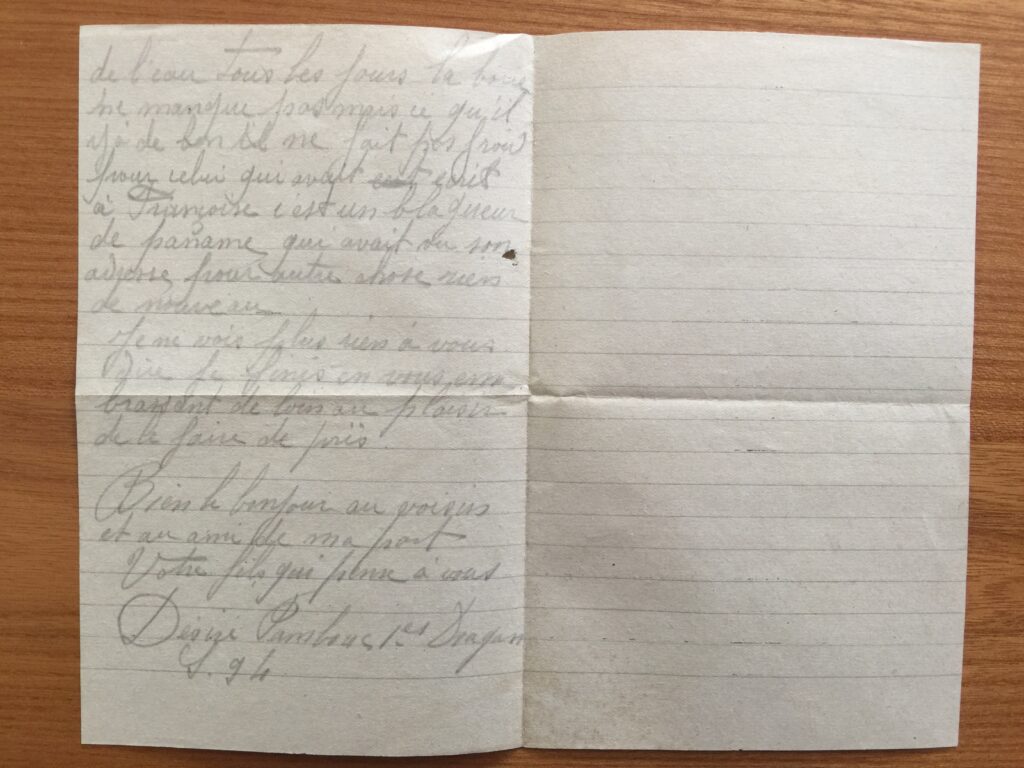 de l'eau tous les jours la boue
ne manque pas mais ce qu'il
y'a de bon il ne fait pas froid
pour celui qui avait ecrit
à Françoise c est un blagueur
de paname qui avait vu son
adresse pour autre chose rien
de nouveau
Je ne vois plus rien à vous
dire je finis en vous em
brassant de loin au plaisir
de le faire de près
Bien le bonjour au voisins
et au ami de ma part
Votre fils qui pense à vous
Désiré 1er Dragon
S. 94